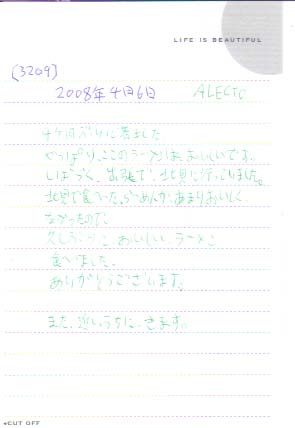 LIFE IS BEAUTIFUL
[3209]
2008年4月6日 ALECTC
4ヶ月ぶりに来ました
やっぱり、ここのラーメンは、おいしいです。
しばらく、出張で、北見に行っていました。
北見で食べた、らーめんが、あまりおいしく
なかったので、
久しぶりに、おいしい、ラーメン
食べました。
ありがとうございます。
また、近いうちに、きます。
CUT OFF